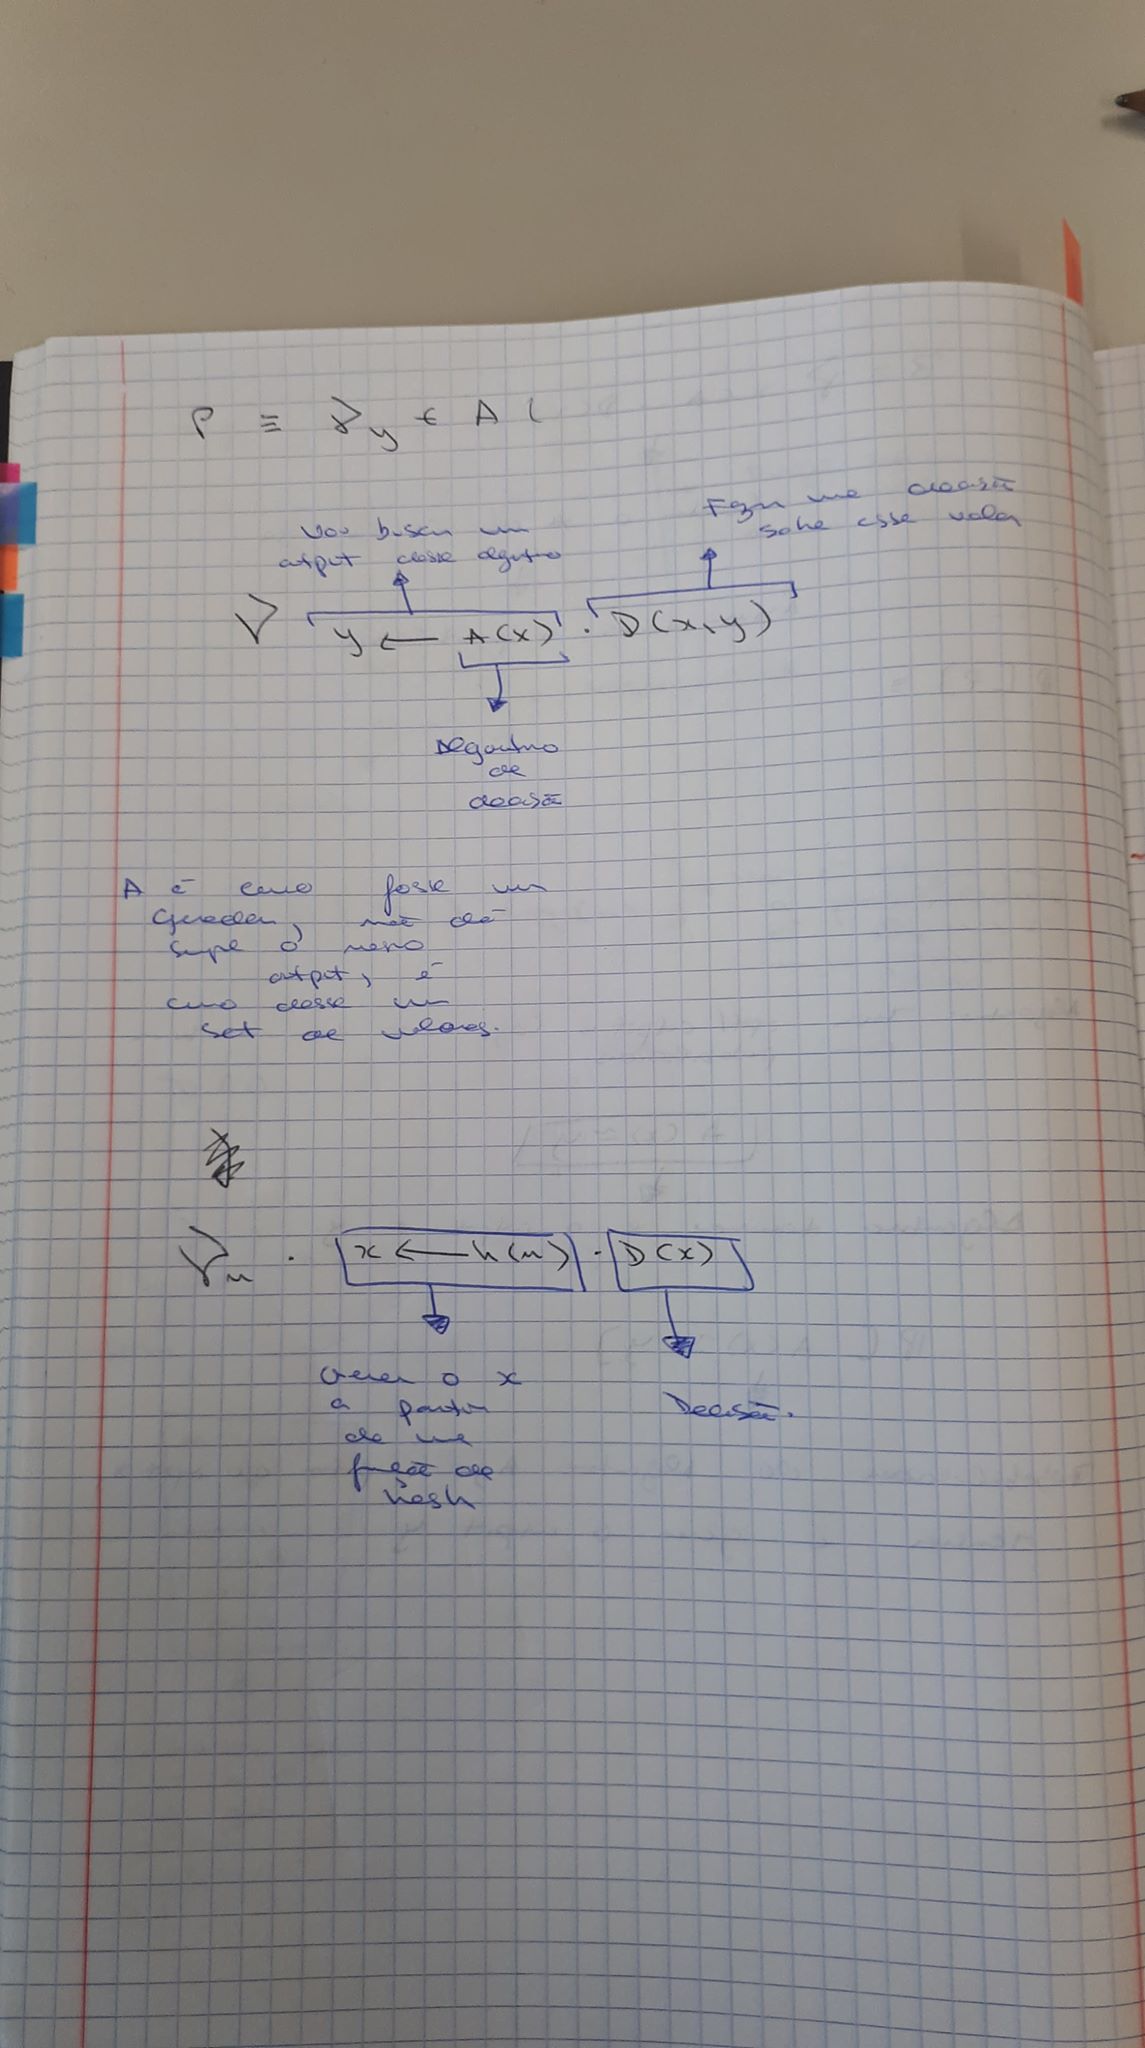 P ≡ ϑy ← A (
Vou buscar um
output desse algoritmo
Fazer uma decisão
sobre esse valor
ϑ y ← A(x) . D(x,y)
Algoritmo
de
decisão
A é como fosse um
gerador, não dá
sempre o mesmo
output, é
como desse um
set de valores.
ϑu . x ← h(u) . D(x)
Gerar o x
a partir
de uma
função de
hash
Decisão.